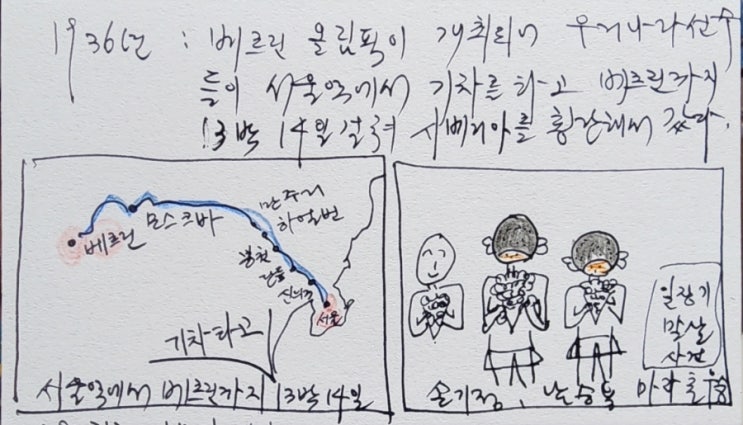 1936년 : 베르린 올림픽이 개최되어 우리나라선수
들이 서울역에서 기차를 타고 베르린까지
13박 14일 걸려 시베리아를 횡단해서 갔다.
베르린
모스크바
만주리
하얼빈
봉천
단동
신의주
서울
기차타고
서울역에서 베르린까지 13박 14일
일장기
말살
사건
손기정, 남승룡 마라톤